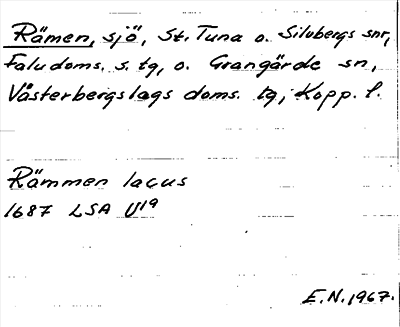 Rämen, sjö, St. Tuna o. Silvbergs snr,
Faludoms. s. tg, o. Grangärde sn,
Västerbergslags doms. tg, Kopp. l.
Rämmen lacus
1687 LSA U19
E.N. 1967.